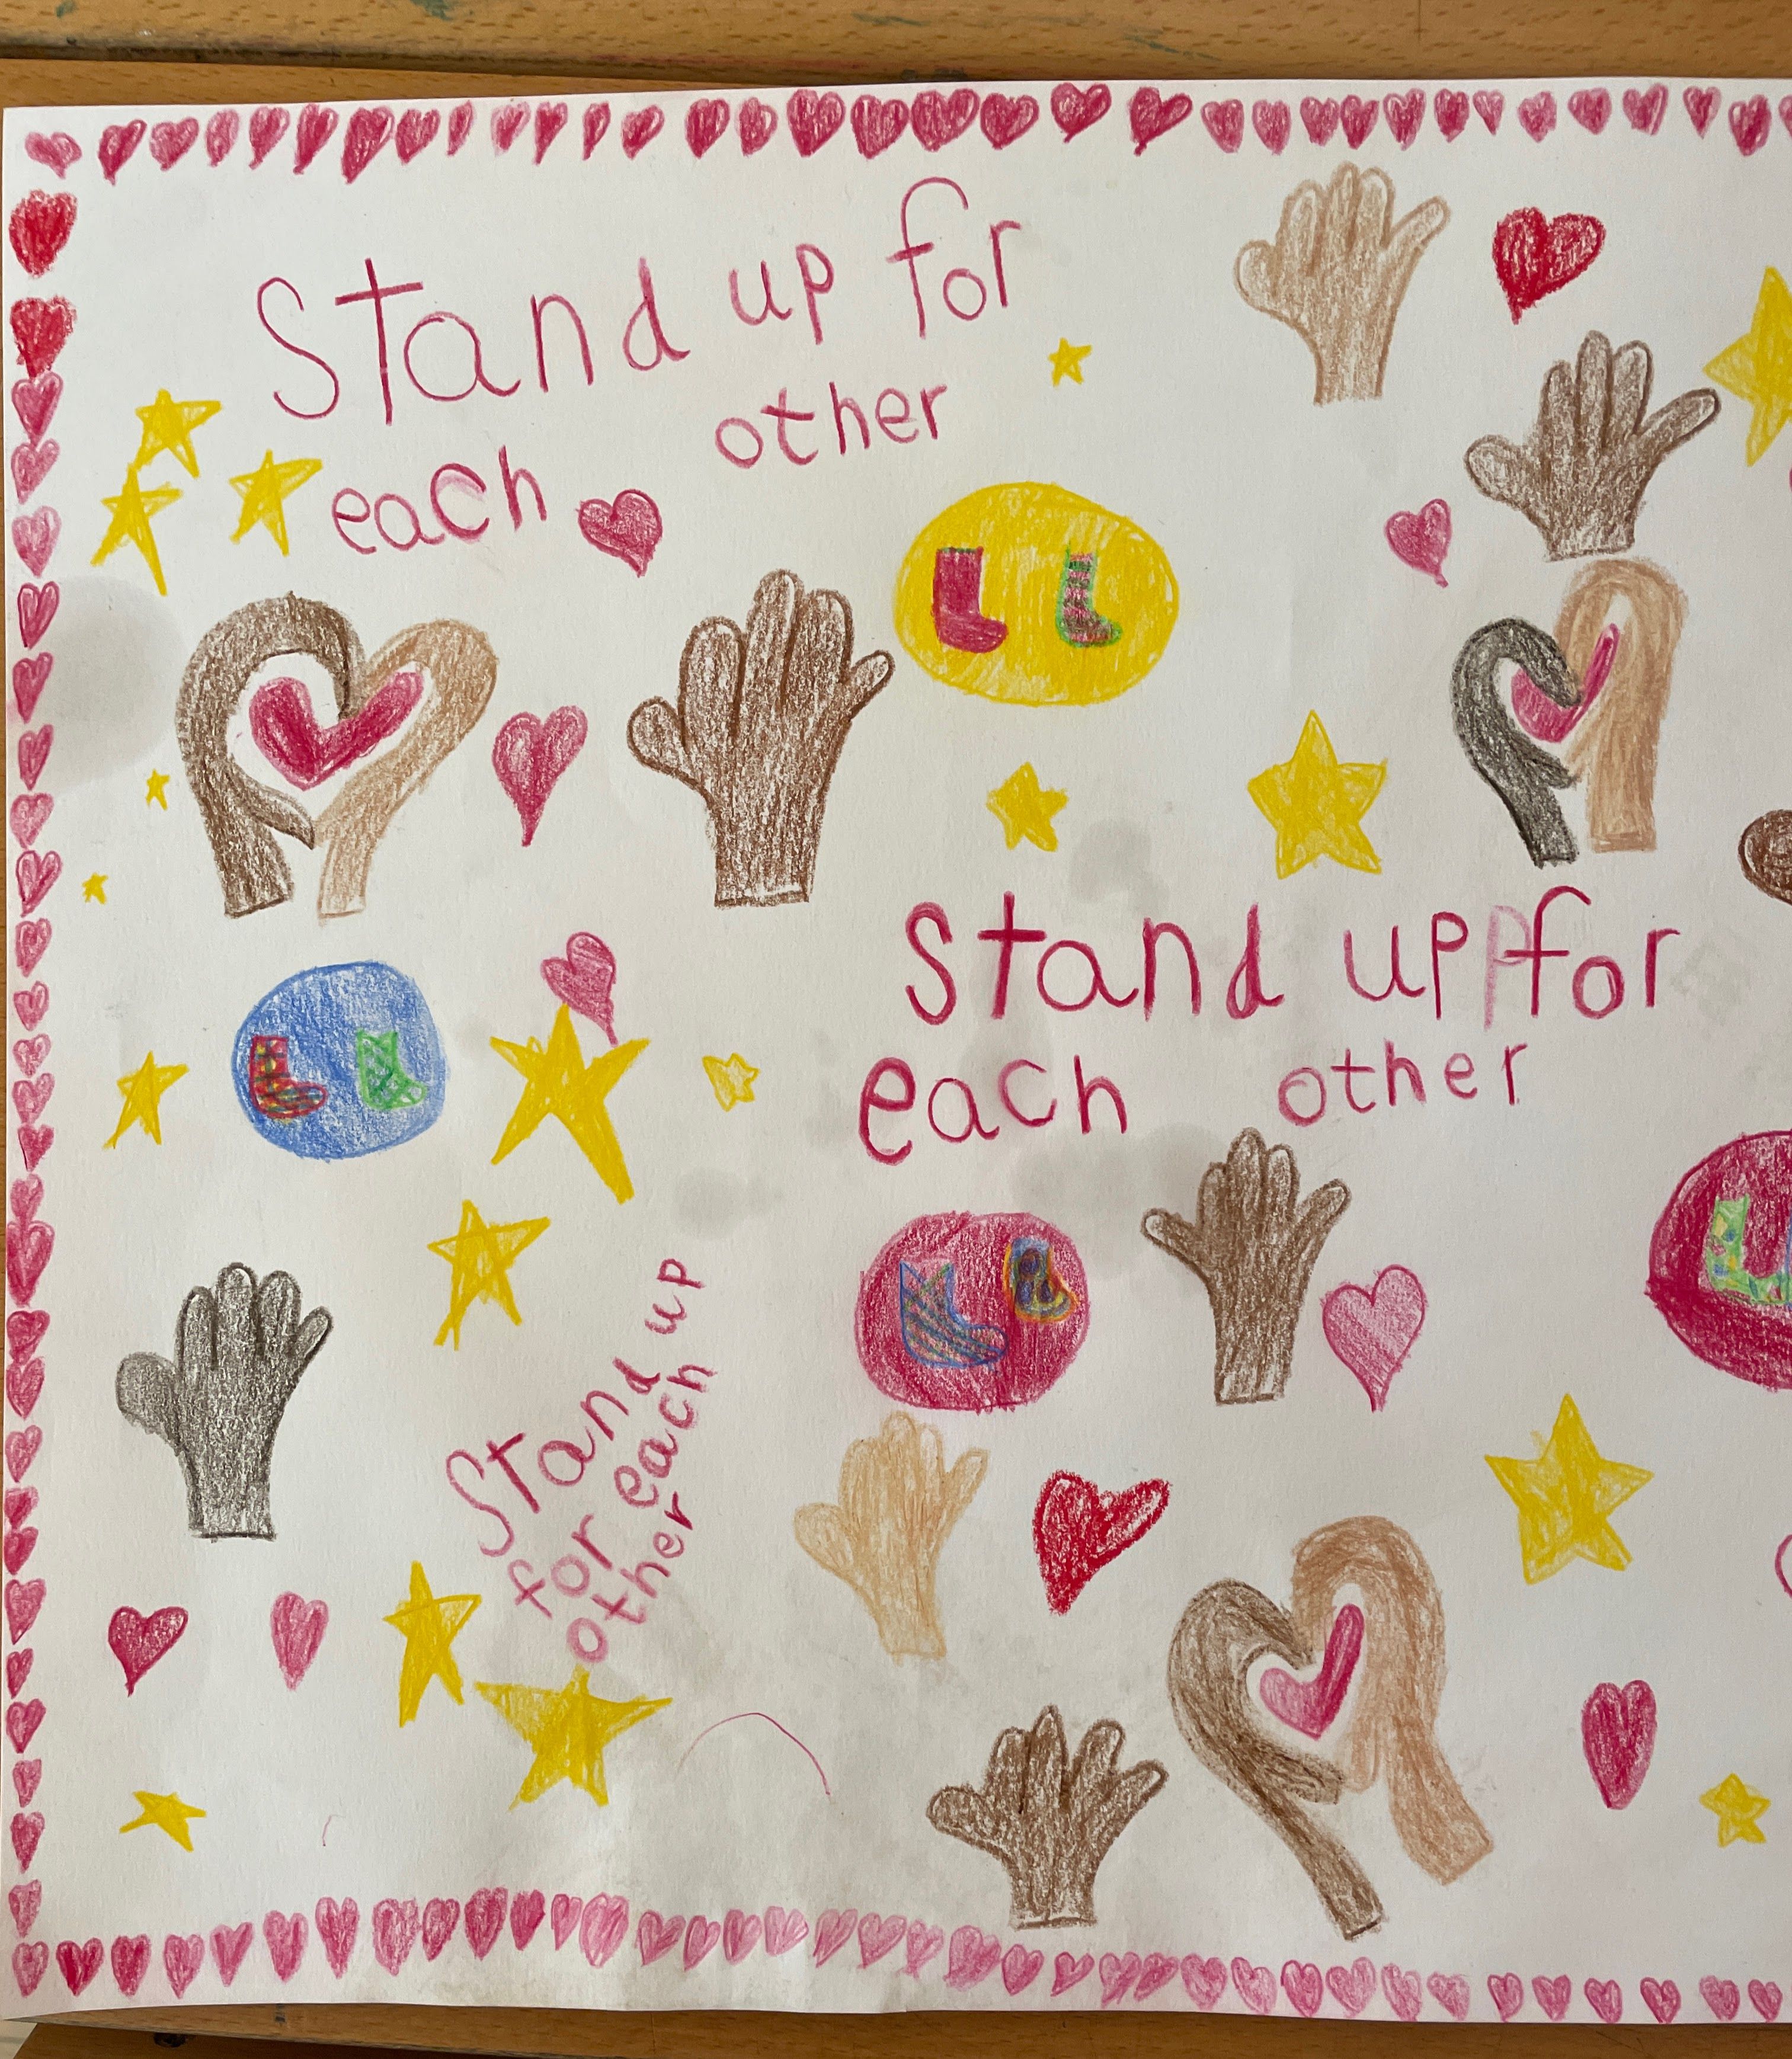 Stand up for
each other
Stand upp for
each other
Stand up
for each
other